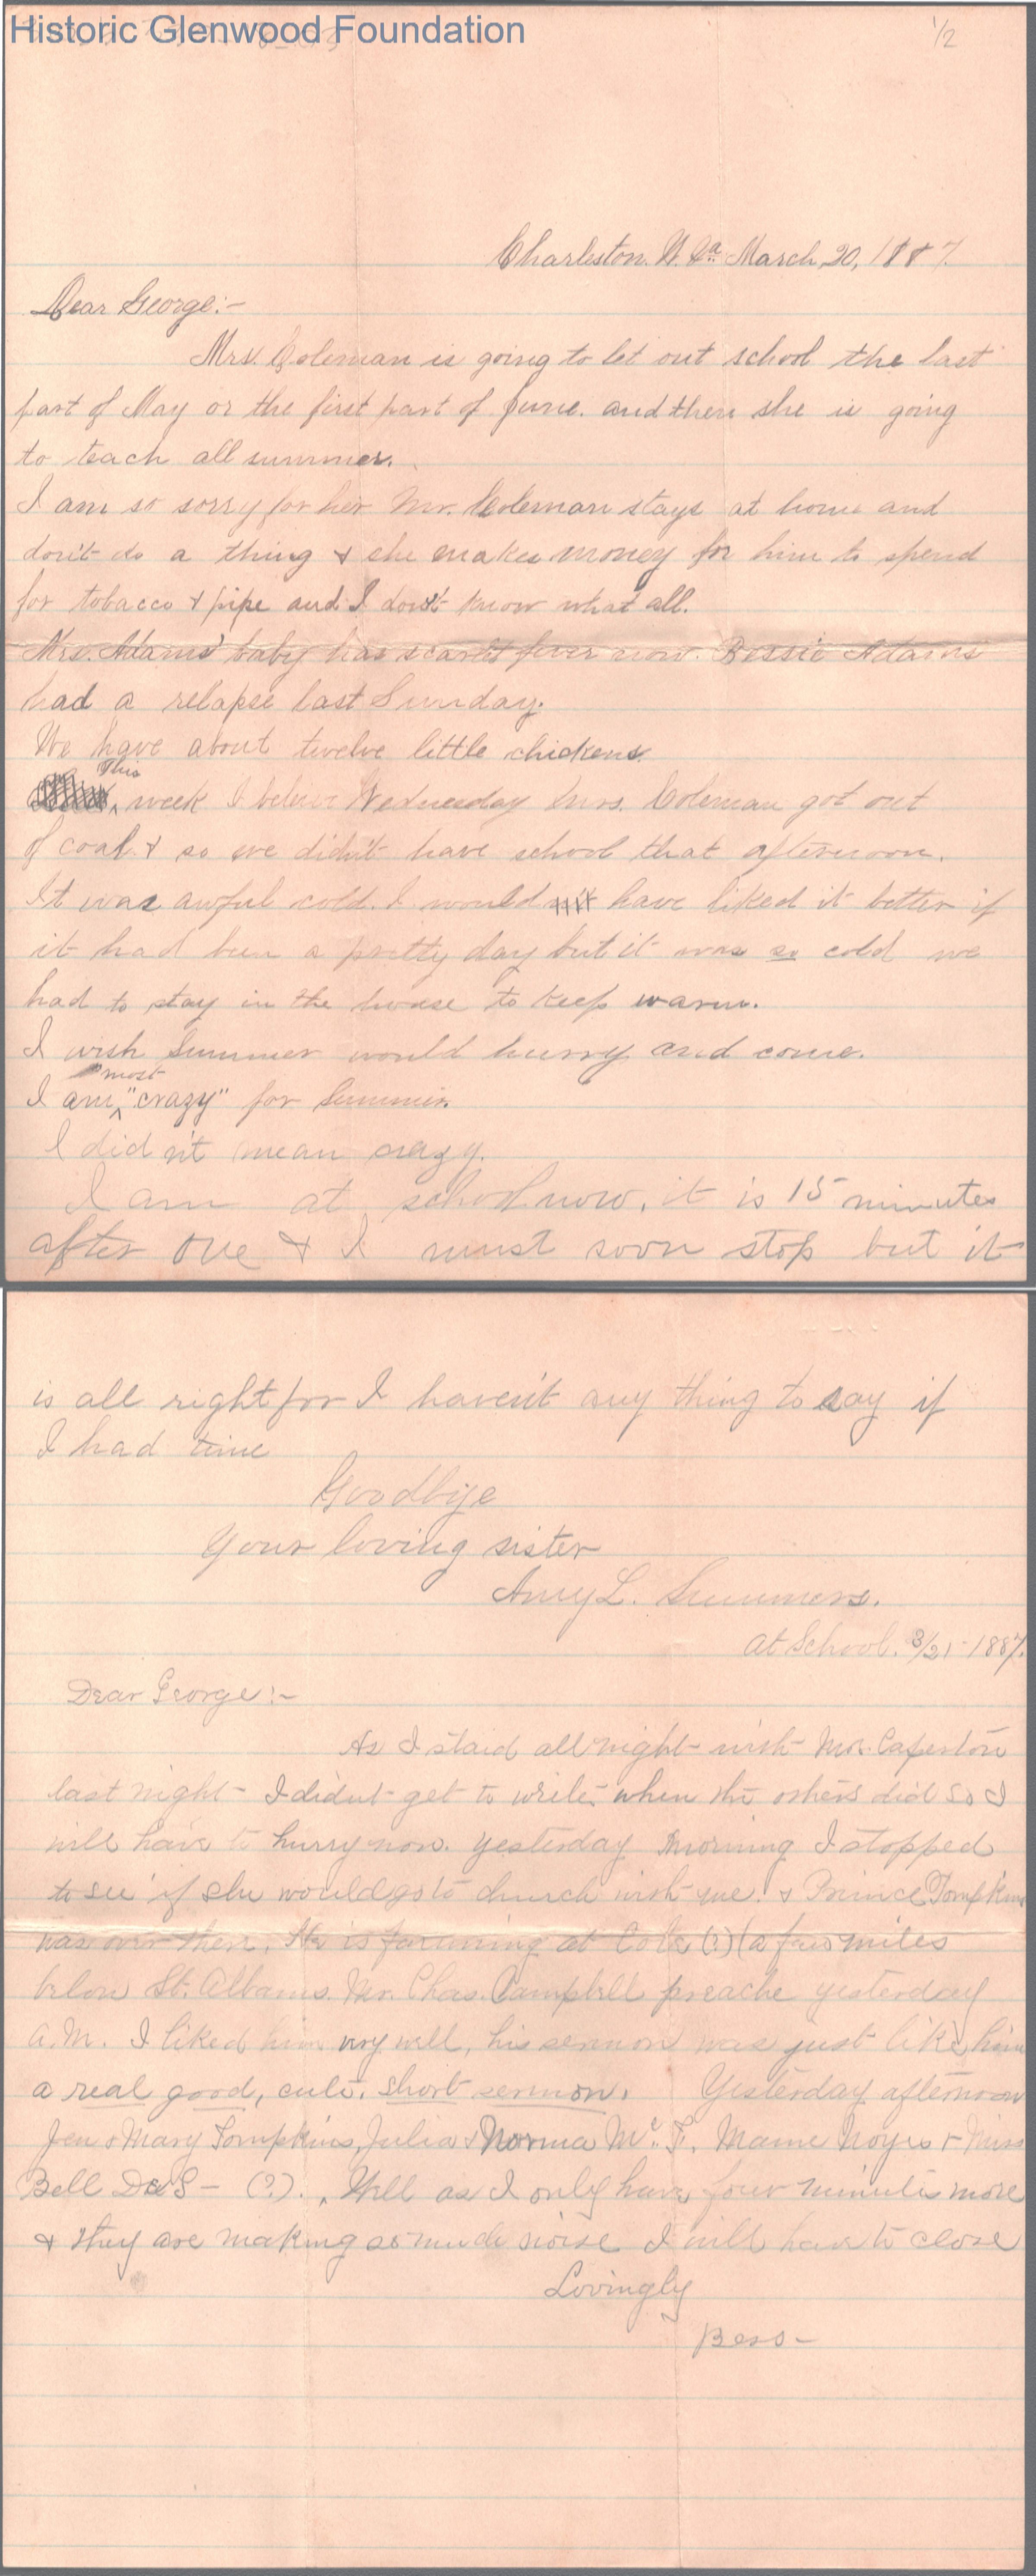 Historic Glenwood Foundation
1/2
Charleston. W. Va. March 20, 1887.
Dear George:-
Mrs. Coleman is going to let out school the last
part of May or the first part of June. and then she is going
to teach all summer.
I am so sorry for her Mr. Coleman stays at home and
don't do a thing & she makes money for him to spend
for tobacco & pipe and I don't know what all.
Mrs. Adams' baby has scarlet fever now. Bessie Adams
had a relapse last Sunday.
We have about twelve little chickens.
This
week I believe Wednesday Mrs. Coleman got out
of coal & so we didn't have school that afternoon.
It was awful cold. I would have liked it better if
it had been a pretty day but it was so cold we
had to stay in the house to keep warm.
I wish Summer would hurry and come.
most
I am "crazy" for Summer.
I did n't mean crazy.
I am at school now, it is 15 minutes
after one & I must soon stop but it
is all right for I haven't any thing to say if
I had time
Goodbye
Your loving sister
Amy L. Summers.
At School. 3/21-1887.
Dear George:-
As I staid all night with Mrs. Caperton
last night- I didn't get to write when the others did so I
will have to hurry now. Yesterday morning I stopped
to see if she would go to church with me. & Prince Tompkins
was over there. He is farming at Cole (?) (a few miles
below St. Albans. Mr. Chas. Campbell preache yesterday
A.M. I liked him very well, his sermon was just like him
a real good, cute, short sermon. Yesterday afternoon
Jen & Mary Tompkins, Julia & Norma Mc. F. Mame Noyes & Miss
Bell De S- (?). Well as I only have four minutes more
& they are making so much noise I will have to close
Lovingly
Bess-